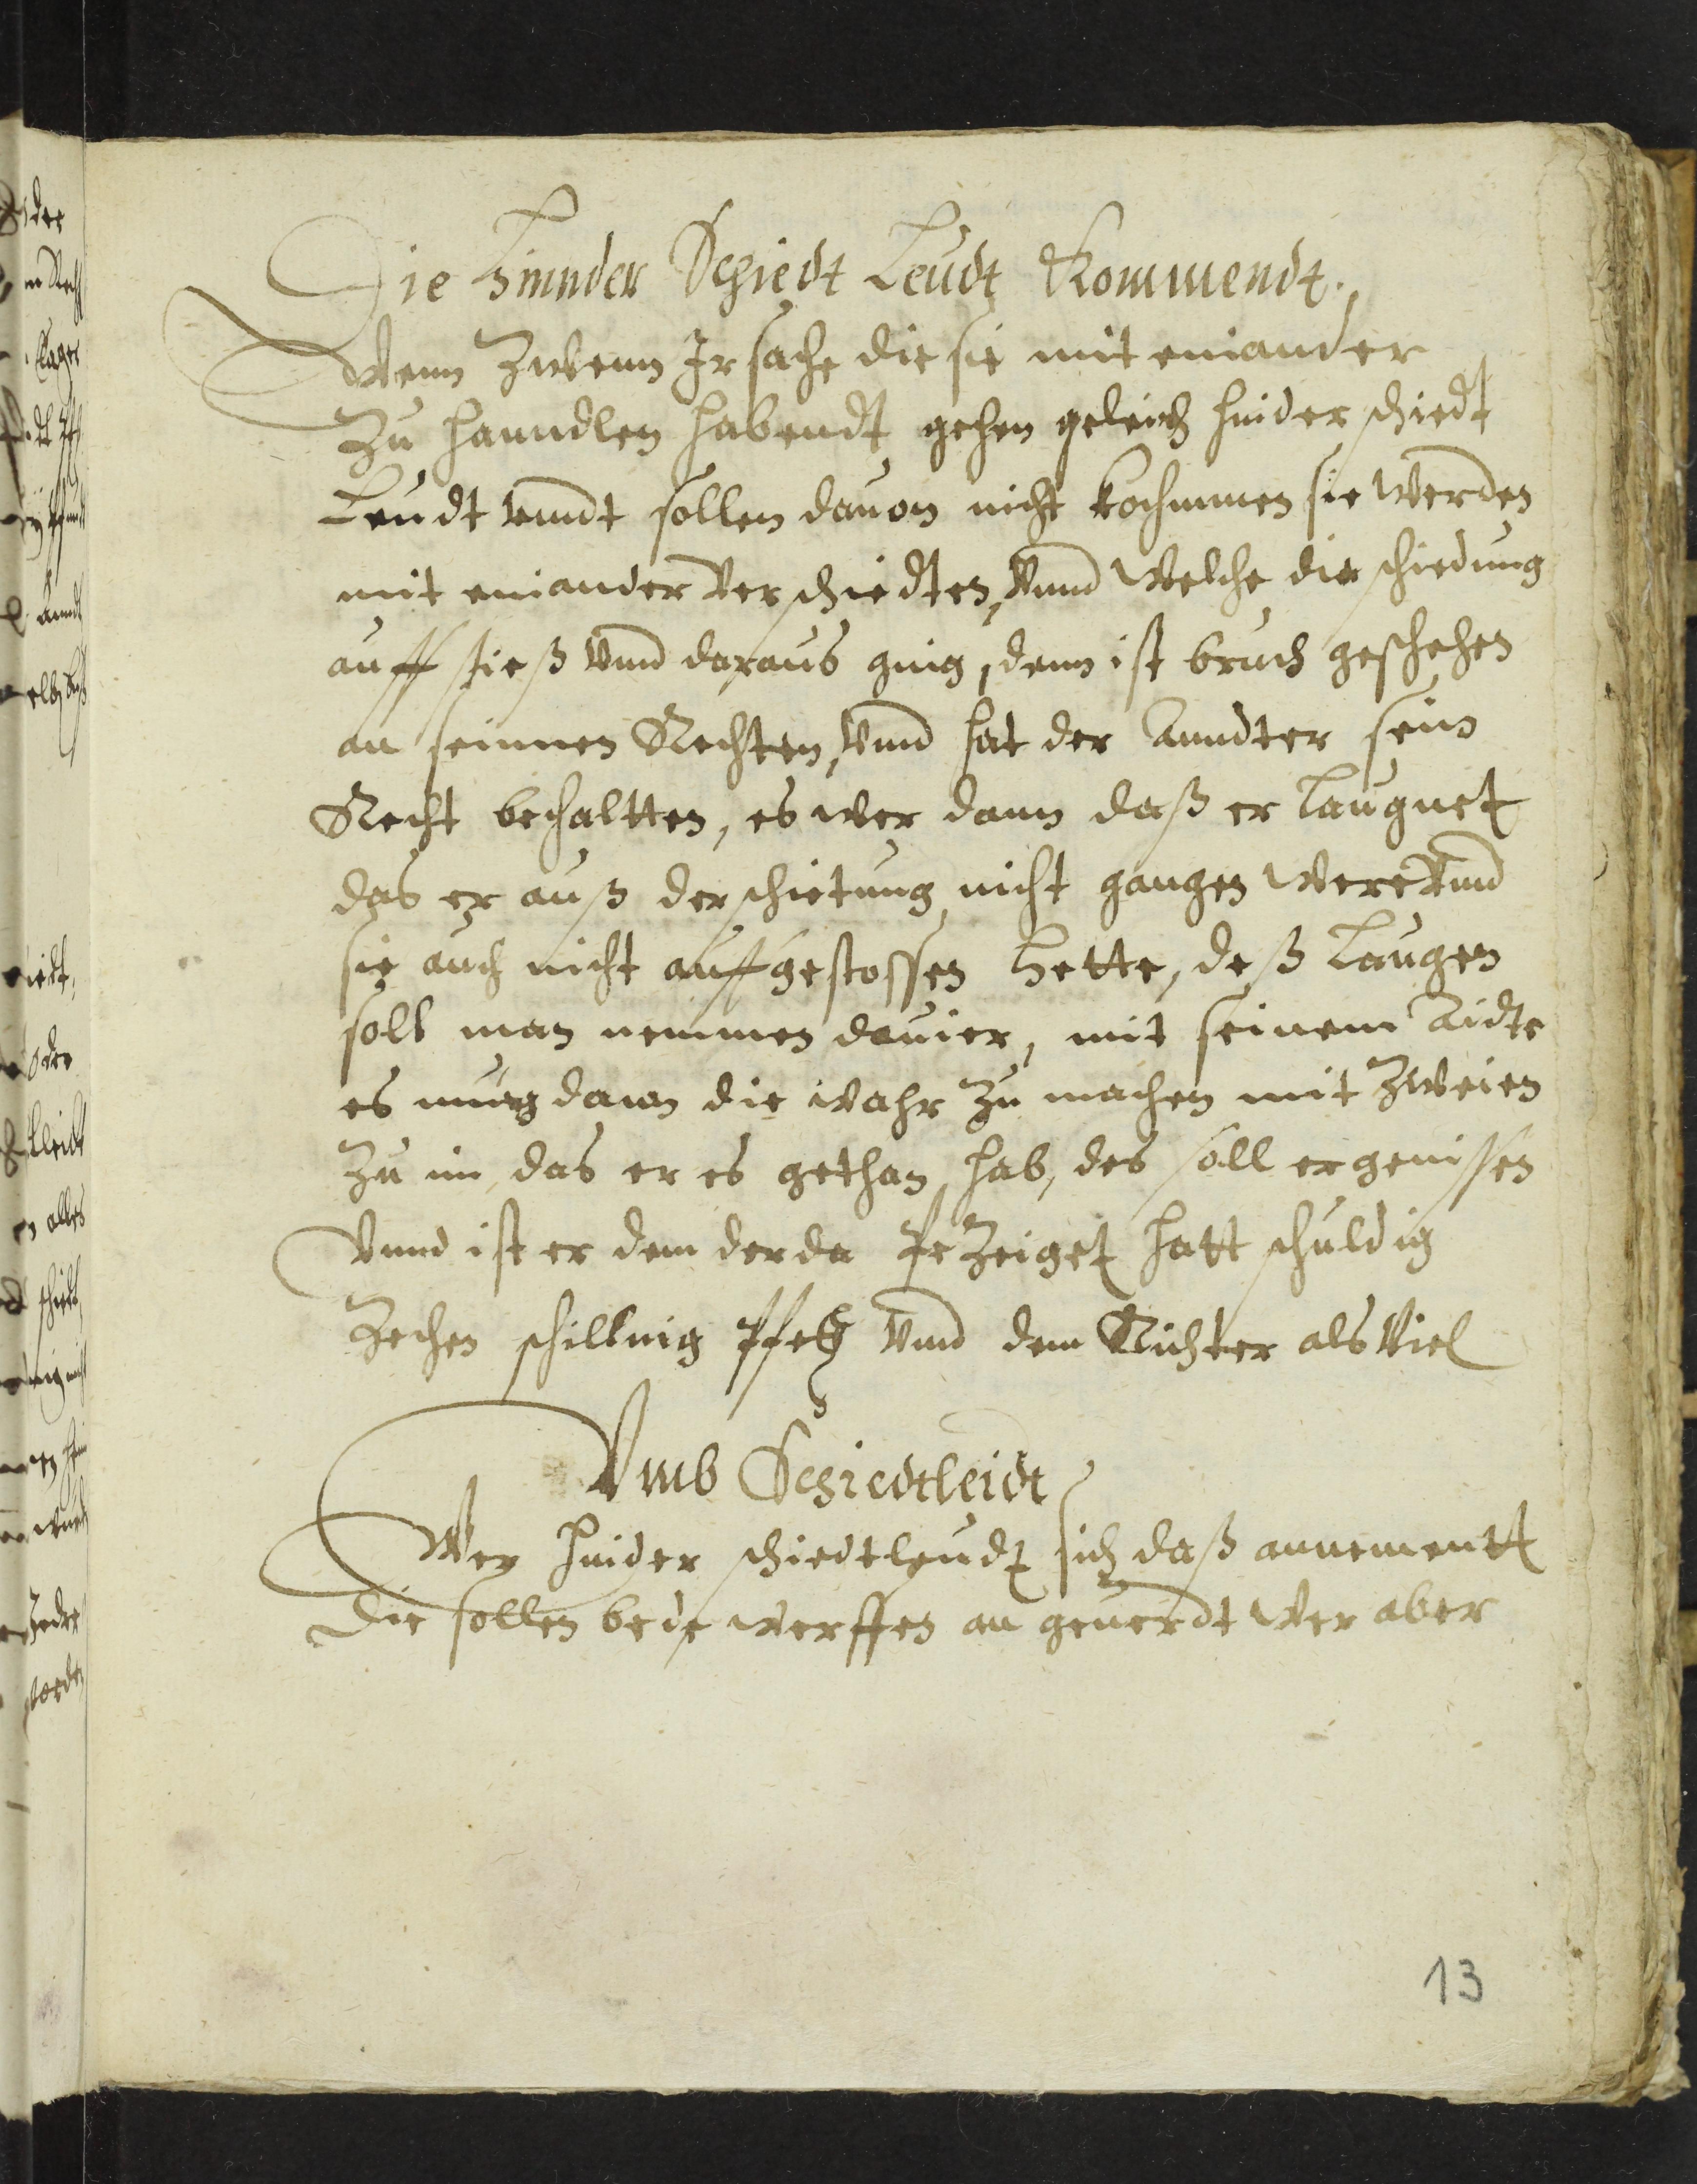 Die Hinnder Schiedt Leudt Kommendt.
Wenn Zwenn Ir sache die sie mit einander
Zu hanndlen habendt gehen geleich hinder schiedt
Leudt vnndt sollen dauon nicht kochmmen sie werden
mit einander verschiedten, Vnnd welche die schiedung
auff stieß Vnnd daraus ging, dem ist bruch geschehen
an seinnen Rechten, Vnnd hat der Anndter sein
Recht behaltten, es wer dann daß er laugnet
das er auß der schietung nicht gangen were Vnnd
sie auch nicht auffgestossen hette, deß laugen
soll man nemmen dauier, mit seinem Aidte
es mug dann die wahr zu machen mit Zweien
Zu im, das er es gethan hab, des soll er genissen
Vnnd ist er dem der da bezeiget hatt schuldig
Zechen schilling Vnnd dem Richter als Viel
Vmb Schiedtleidt
Wer hinder schiedtleudt sich daß annementt
die sollen bede werffen an geuerdt wer aber
13